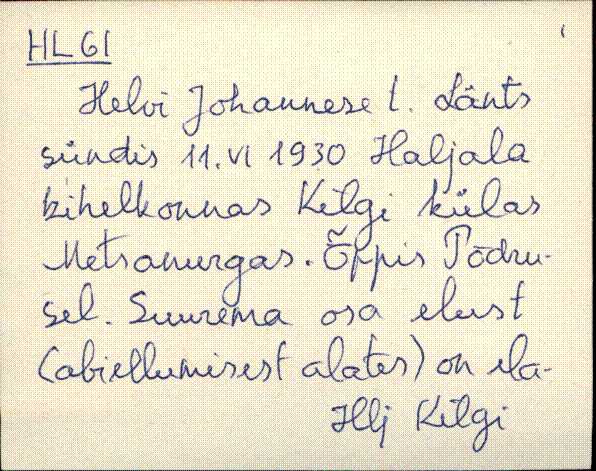 HL 61
Helvi Johannese t. Länts
sündis 11.VI 1930 Haljala
kihelkonnas Kõlgi külas
Metsanurgas. Õppis Põdru-
sel. Suurema osa elust
(abiellumisest alates) on ela-
Hlj Kõlgi